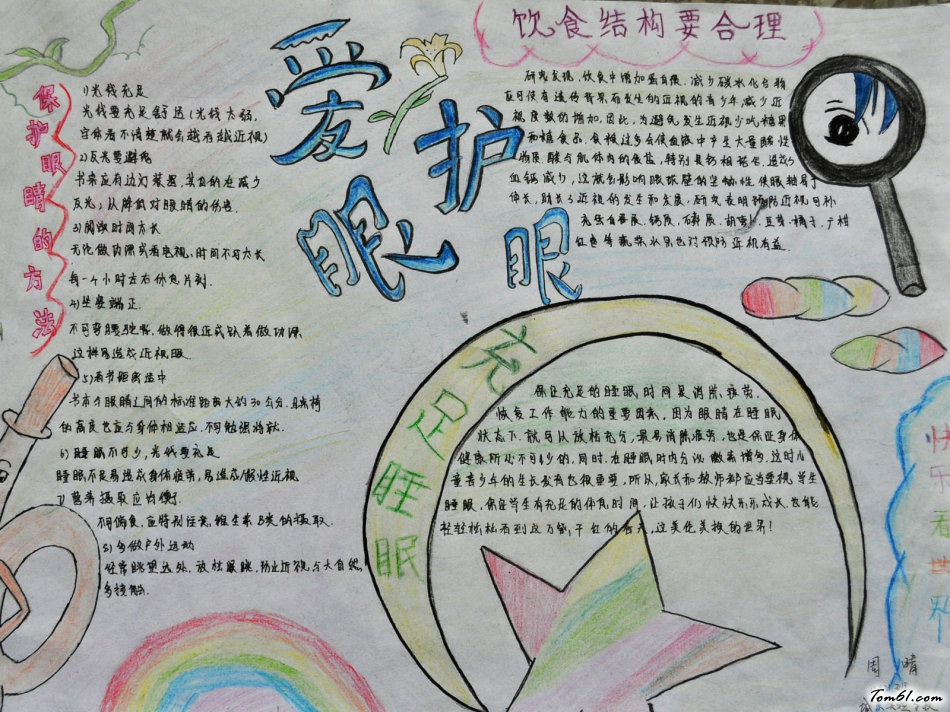 爱护眼眼
保护眼睛的方法
1)光线充足
光线要充足舒适(光线太弱,
字体看不清楚就会越看越近视)
2)反光要避免
书桌应有边灯装置,其目的在减少
反光,从降低对眼睛的伤害.
3)阅读时间勿长
无论做功课或看电视,时间不可太长
每一个小时左右休息片刻.
4)坐姿端正.
不可弯腰驼背.
这样易造成近视眼.
5)看书距离适中
书本与眼睛之间的标准距离大约30公分.且桌椅
的高度也应与身体相适应.不可勉强将就.
6)睡眠不可少,光线要充足
睡眠不足易造成身体疲劳,易造成假性近视
7)营养摄取应均衡
不可偏食,应特别注意,维生素B类的摄取.
8)多做户外运动
经常眺望远处,放松眼睛,防止近视,与大自然
多接触.
饮食结构要合理
研究发现,饮食中增加蛋白质、减少碳水化合物
在可使有遗传背景而发生的近视的青少年减少近
视度数的增加.因此,为避免发生近视少吃糖果
和糖食品.食糖过多会使血液中产生大量酸性
物质,酸与肌体内的食盐,特别是钙相结合,造成
血钙减少,这就会影响眼球壁的坚韧性,使眼轴易于
伸长,助长了近视的发生和发展.研究表明预防近视可补
充蛋白质、钙质、磷质、胡萝卜、豆芽、橘子、广柑
红枣等蔬菜水果也对预防近视有益.
充足睡眠
保证充足的睡眠时间是消除疲劳,
恢复工作能力的重要因素,因为眼睛在睡眠
状态下,就可从放松充分,最易消除疲劳,也是保证身体
健康所必不可少的,同时,在睡眠时内分泌激素增多,这对儿
童青少年的生长发育也很重要,所从,家长和教师都应当重视学生
睡眠,保证学生有充足的休息时间,让孩子们快快乐乐成长,也能
轻轻松松看到这万紫千红的春天,这美伦美换的世界!
快乐看世界
周晴
Tom61.com